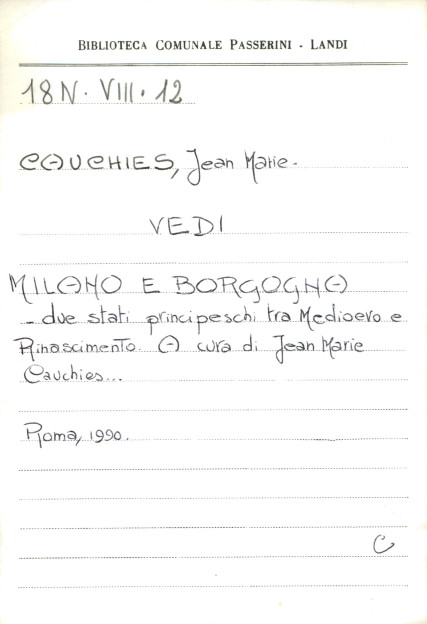 BIBLIOTECA COMUNALE PASSERINI - LANDI
18 N. VIII. 12
CAUCHIES, Jean Marie.
VEDI
MILANO E BORGOGNA
- due stati principeschi tra Medioevo e
Rinascimento. A cura di Jean Marie
Cauchies...
Roma, 1990.
C